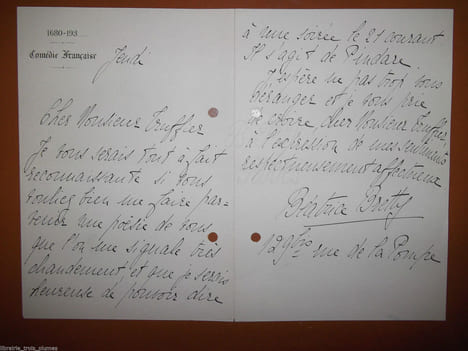 1680-193...
Comédie Française
Jeudi
Cher Monsieur Truffier
Je vous serais tout à fait
reconnaissante si vous
vouliez bien me faire par-
venir une poésie de vous
que l'on me signale très
chaudement et que je serais
heureuse de pouvoir dire
à une soirée le 21 courant
Il s'agit de Pindare.
J'espère ne pas trop vous
déranger et je vous prie
de croire, cher Monsieur Truffier
à l'expression de mes sentiments
respectueusement affectueux
Béatrice Bretty
129bis rue de la Pompe
librairie_trois_plumes